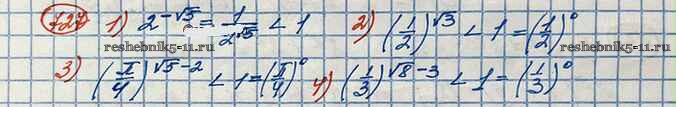 727 1) 2^{-√5} = 1/2^{√5} < 1 2) (1/2)^{√3} < 1 = (1/2)^0
reshebnik5-11.ru reshebnik5-11.ru
3) (π/4)^{√5-2} < 1 = (π/4)^0 4) (1/3)^{√8-3} < 1 = (1/3)^0